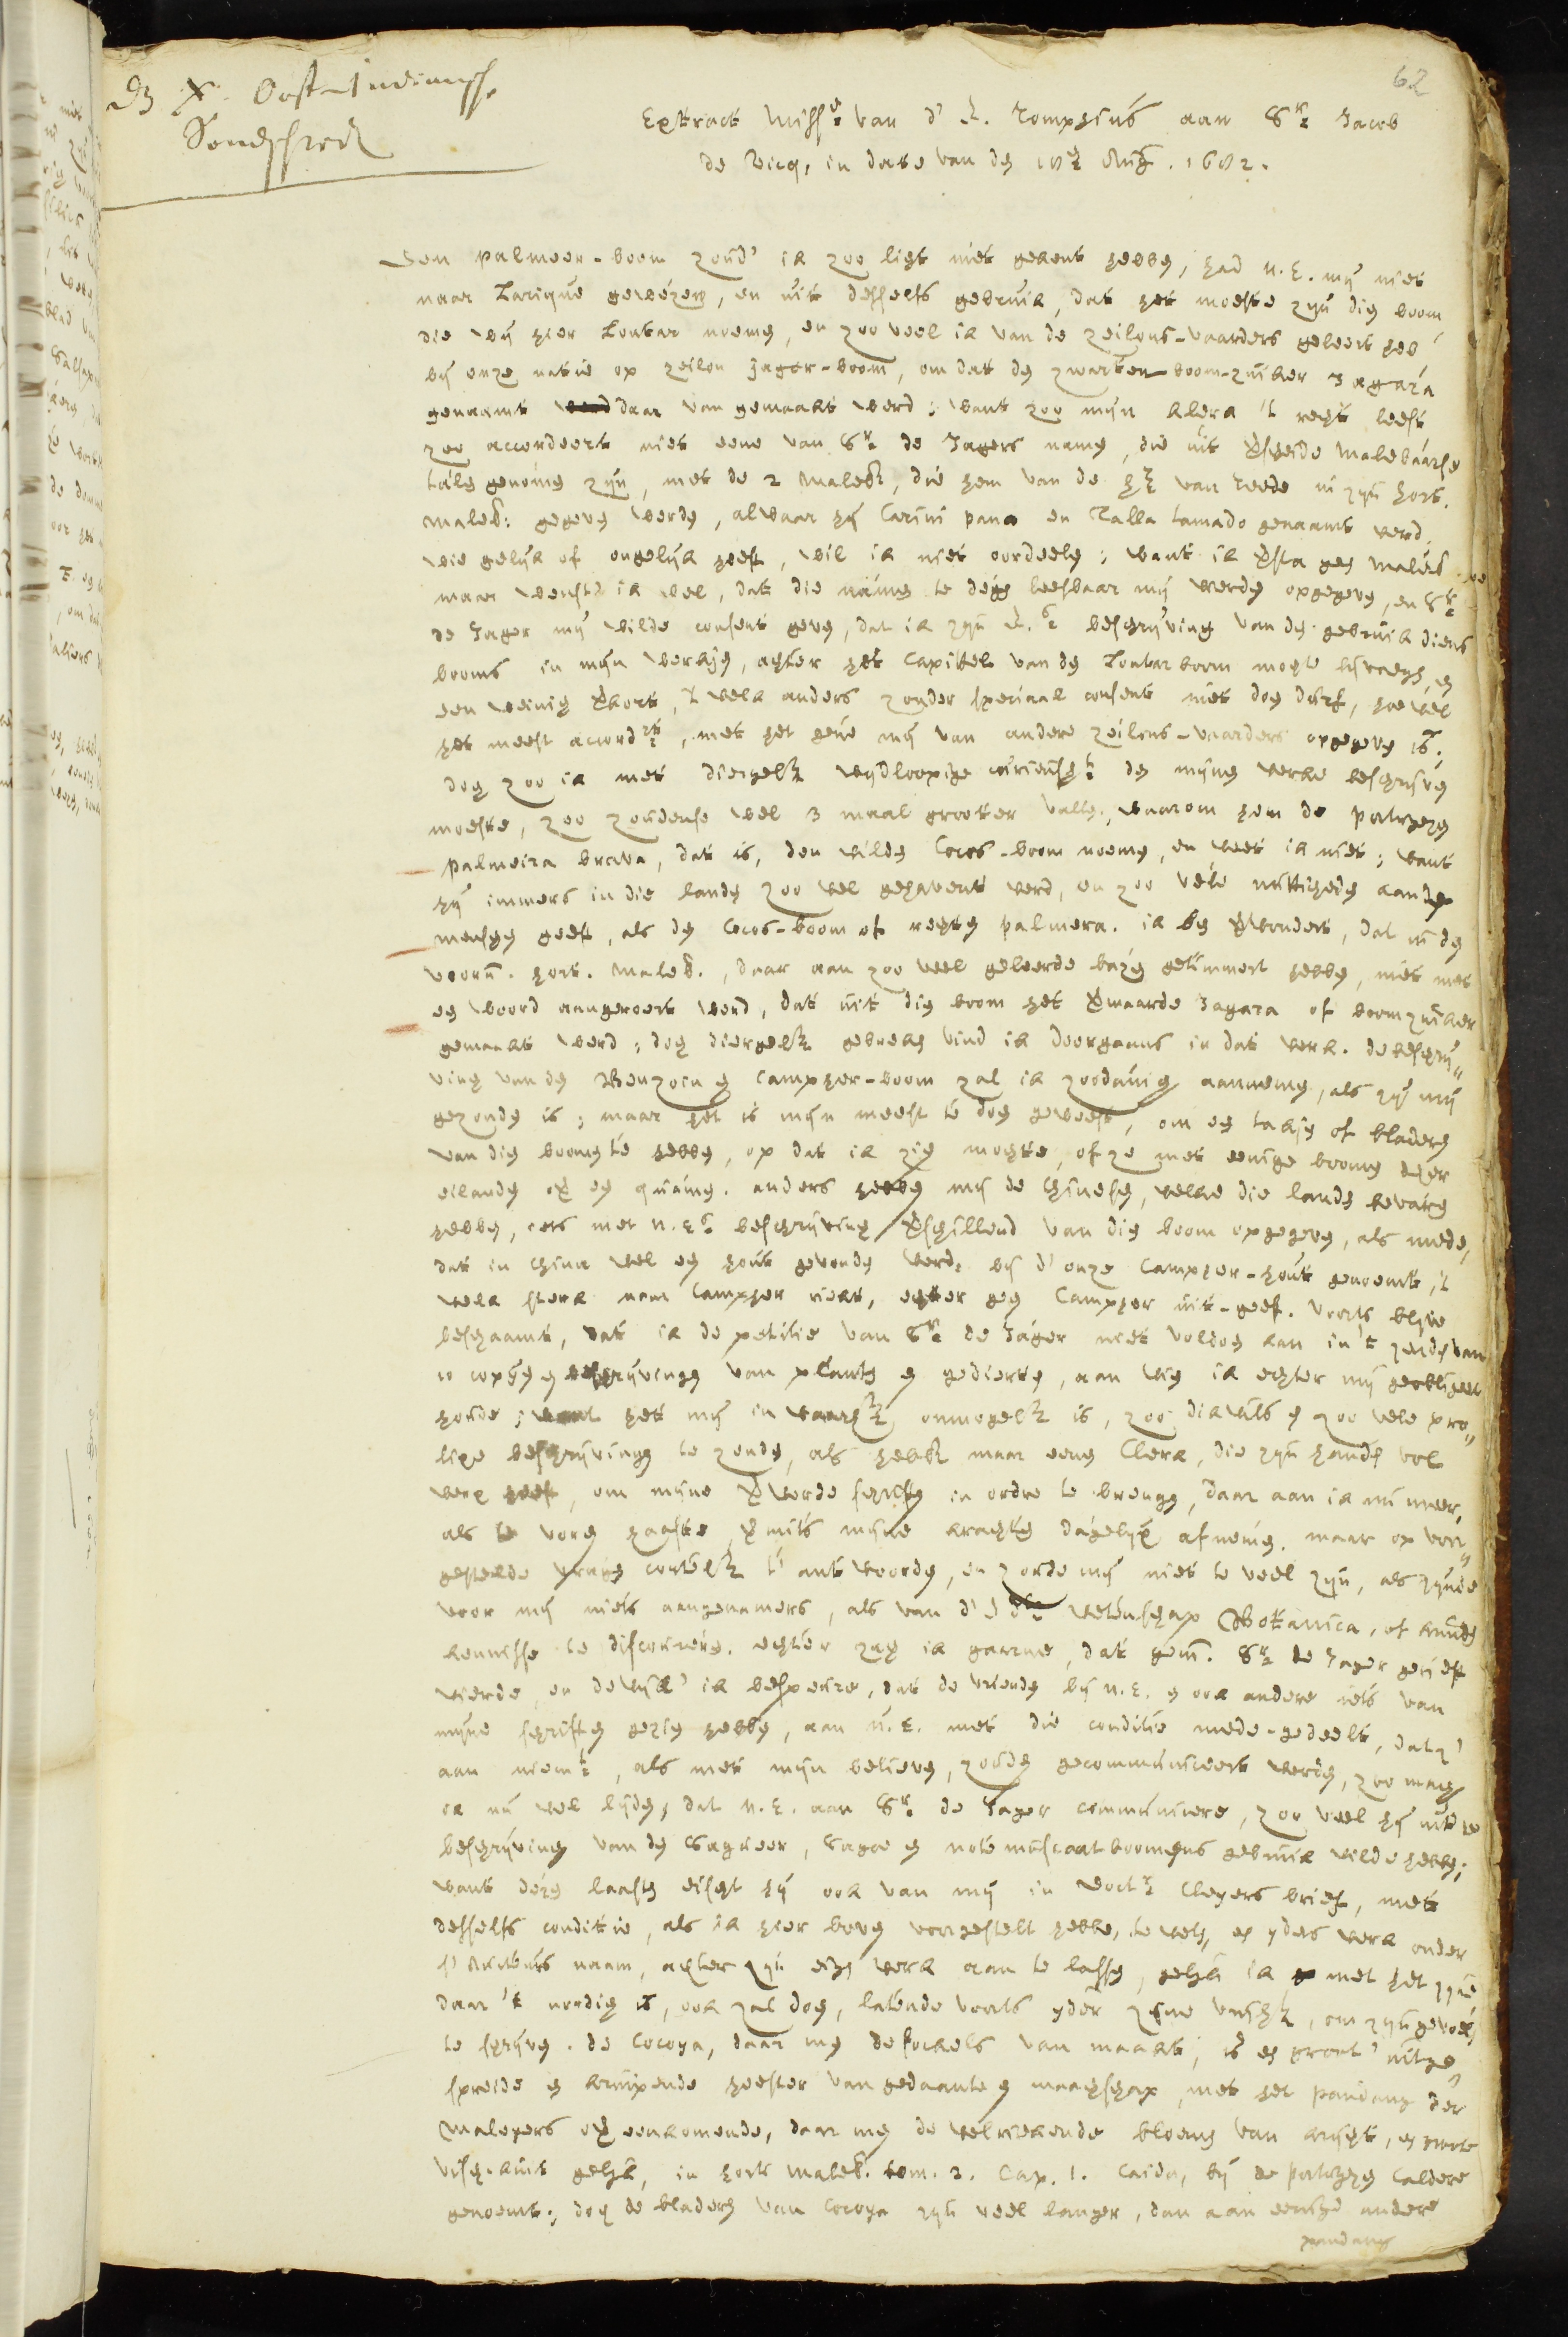 62
X. Oost-Indianische
Sendschreiben
Extract Miss.e van d' E. Rompsius aan Sr. Jacob
de Vicq, in date van den 18e Aug. 1682.
Den palmeer-boom zoud' ik zoo licht niet gekent hebben, had U.E. mij niet
naar Larique gewezen, en uit desselfs gebruik, dat het moeste zijn dien boom
die wij hier Lontar noemen, en zoo veel ik van de zeilons-vaarders geleert heb
bij onze natie op zeilon Jager-boom, om dat den zwarten boom-zuiker Jagara
genaamt daar van gemaakt werd; want zoo mijn klerk 't recht leest
zoo accordeert niet eene van Sr. de Jagers namen, die uit verscheide Malebaarse
talen genomen zijn, met de 2 Maleb:, die hem van de Hr. van Reede in zijn hort.
Maleb: gegeven werden, alwaar hij Carini pana en Talla tamado genaamt werd.
wie gelijk of ongelijk heeft, wil ik niet oordeelen; want ik versta geen Maleb
maar wenste ik wel, dat die namen te degen leesbaar mij werden opgegeven, en Sr.
de Jager mij wilde consent geven, dat ik zijn E. beschrijving van den gebruik diens
booms in mijn werkje, achter het Capittel van den Lontarboom mocht bijvoegen,
een weinig verkort, 't welk anders zonder speciaal consent niet doen durf, hoewel
het meest accordeert, met het gene mij van andere zeilons-vaarders opgegeven is;
doch zoo ik met diergelke wijdloopige curieush: den mijnen werke beschrijven
moeste, zoo zoudense wel 3 maal grooter vallen, waarom hem de portugezen
palmeira brava, dat is, den wilden Cocos-boom noemen, en weet ik niet; want
hij immers in die landen zoo wel gehavent werd, en zoo vele nuttigheden aan den
menschen geeft, als den Cocos-boom of rechten palmera. ik ben verwondert, dat in den
voorn. hort. Maleb., daar aan zoo veel geleerde bazen getimmert hebben, niet met
een woord aangeroert werd, dat uit dien boom het vermaarde Jagara of boomzuiker
gemaakt werd; doch diergelke gebreken vind ik doorgaans in dat werk. de beschrij„
ving van den Benzoin en Campher-boom zal ik zoodanig aannemen, als zij mij
gezonden is; maar het is mijn meest te doen geweest, om een takje of bladeren
van dien boomen te hebben, op dat ik zien mochte, of ze met eenige boomen deser
eilanden over een quamen. anders hebben mij de Chinesen, welke die landen bevaren
hebben, iets met U.E. beschrijving verschillend van dien boom opgegeven, als mede,
dat in China wel een hout gevonden werd, bij d' onze Campher-hout genoemt, 't
welk sterk naar Campher riekt, echter geen Campher uit-geeft. voorts blijve
beschaamt, dat ik de petitie van Sr. de Jager niet voldoen kan in 't zenden van
10 copyen en beschrijvingen van planten en gedierten, aan wien ik echter mij geobligeert
houde; want het mij in waarh: onmogelk is, zoo dikwils en zoo vele pro„
lixe beschrijvingen te zenden, als hebbe maar eenen Clerk, die zijn handen vol
werk heeft, om mijne verwerde schriften in ordre te brengen, daar aan ik nu meer
als te voren haaste, vermits mijne krachten dagelijx afnemen. maar op voor„
gestelde vragen cortelk t' antwoorden, en zoude mij niet te veel zijn, als zijnde
voor mij niets aangenamers, als van d' edele wetenschap Botanica, of kruiden
kennisse te discoureren. echter zag ik gaarne, dat gem. Sr. de Jager gerieft
wierde, en dewijl ik bespeure, dat de vrienden bij U.E. en ook andere iets van
mijne schriften gezien hebben, aan U.E. met die conditie mede-gedeelt, dat z'
aan niemt, als met mijn believen, zouden gecommuniceert werden, zoo mag
ik nu wel lijden, dat U.E. aan Sr. de Jager communicere, zoo veel hij uit de
beschrijving van den Sagueer, Sagoe en note muscaatboomens gebruik wilde hebben;
want dezen laasten eischt hij ook van mij in Doctr Cleyers brief, met
desselfs conditie, als ik hier boven voorgestelt hebbe, te weten, een yders werk onder
d' Auteurs naam, achter zijn eigen werk aan te lassen, gelijk ik met het zijne
daar 't nordig is, ook zal doen, latende voorts yder zijne vrijh:, om zijn gevoelen
te schrijven. de Cocoya, daar men de sockels van maakt, is een groot' uitge„
spreide en kruipende heester van gedaante en maagschap, met het pandang der
Maleyers over eenkomende, daar men de welriekende bloemen van krijgt, en
gelijk, in hort. Maleb. tom. 2. Cap. 1. Caida, bij de portugezen Caldere
genoemt; doch de bladeren van Cocoya zijn veel langer, dan aan eenige andere
pandang